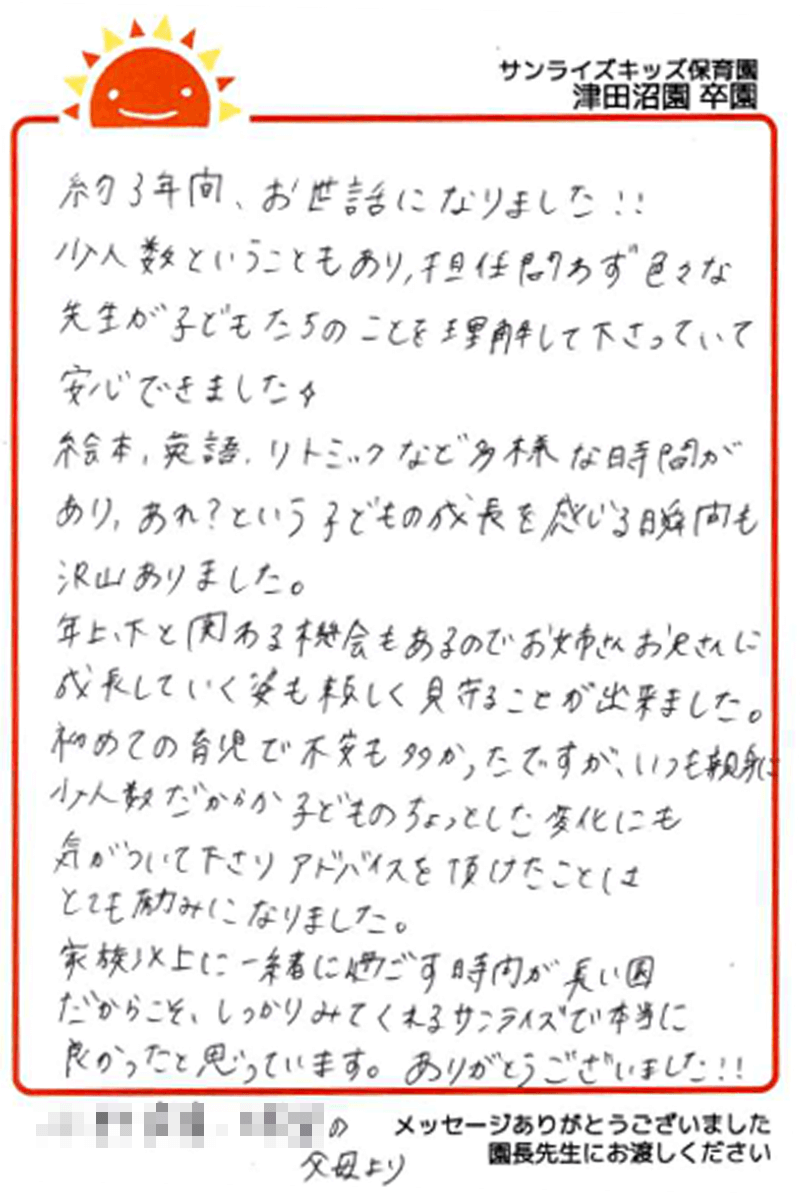 サンライズキッズ保育園
津田沼園 卒園
約3年間、お世話になりました!!
少人数ということもあり、担任問わず色々な
先生が子どもたちのことを理解して下さっていて
安心できました
絵本、英語、リトミックなど多様な時間が
あり、あれ?という子どもの成長を感じる瞬間も
沢山ありました。
年上、下と関わる機会もあるのでお姉さんお兄さんに
成長していく姿も頼しく見守ることが出来ました。
初めての育児で不安も多かったですが、いつも親身に
少人数だからか子どものちょっとした変化にも
気がついて下さりアドバイスを頂けたことは
とても励みになりました。
家族以上に一緒に過ごす時間が長い園
だからこそ、しっかりみてくれるサンライズで本当に
良かったと思っています。ありがとうございました!!
の
父母より
メッセージありがとうございました
園長先生にお渡しください